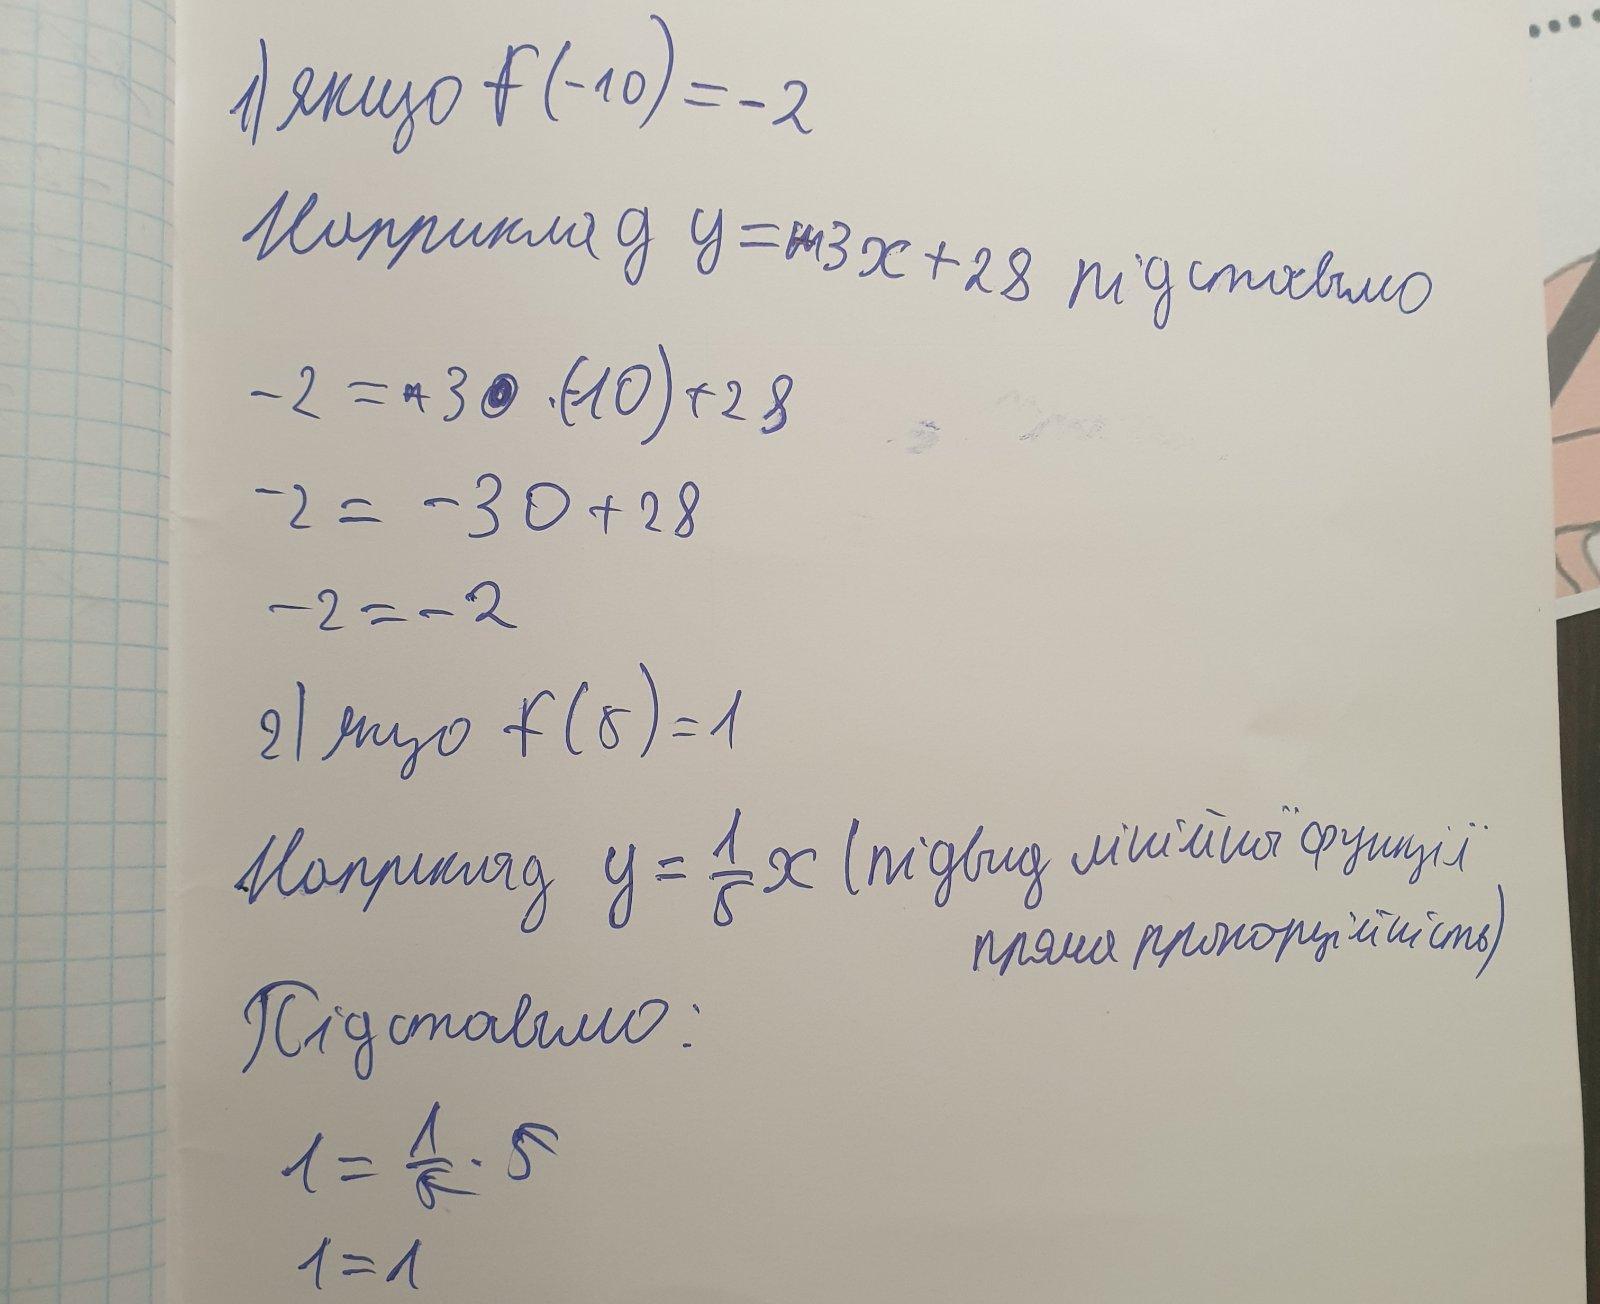 1) якщо f(-10) = -2
Наприклад y = 3x + 28 підставимо
-2 = 3 · (-10) + 28
-2 = -30 + 28
-2 = -2
2) якщо f(5) = 1
Наприклад y = 1/5 x (підвид лінійної функції
пряма пропорційність)
Підставимо:
1 = 1/5 · 5
1 = 1